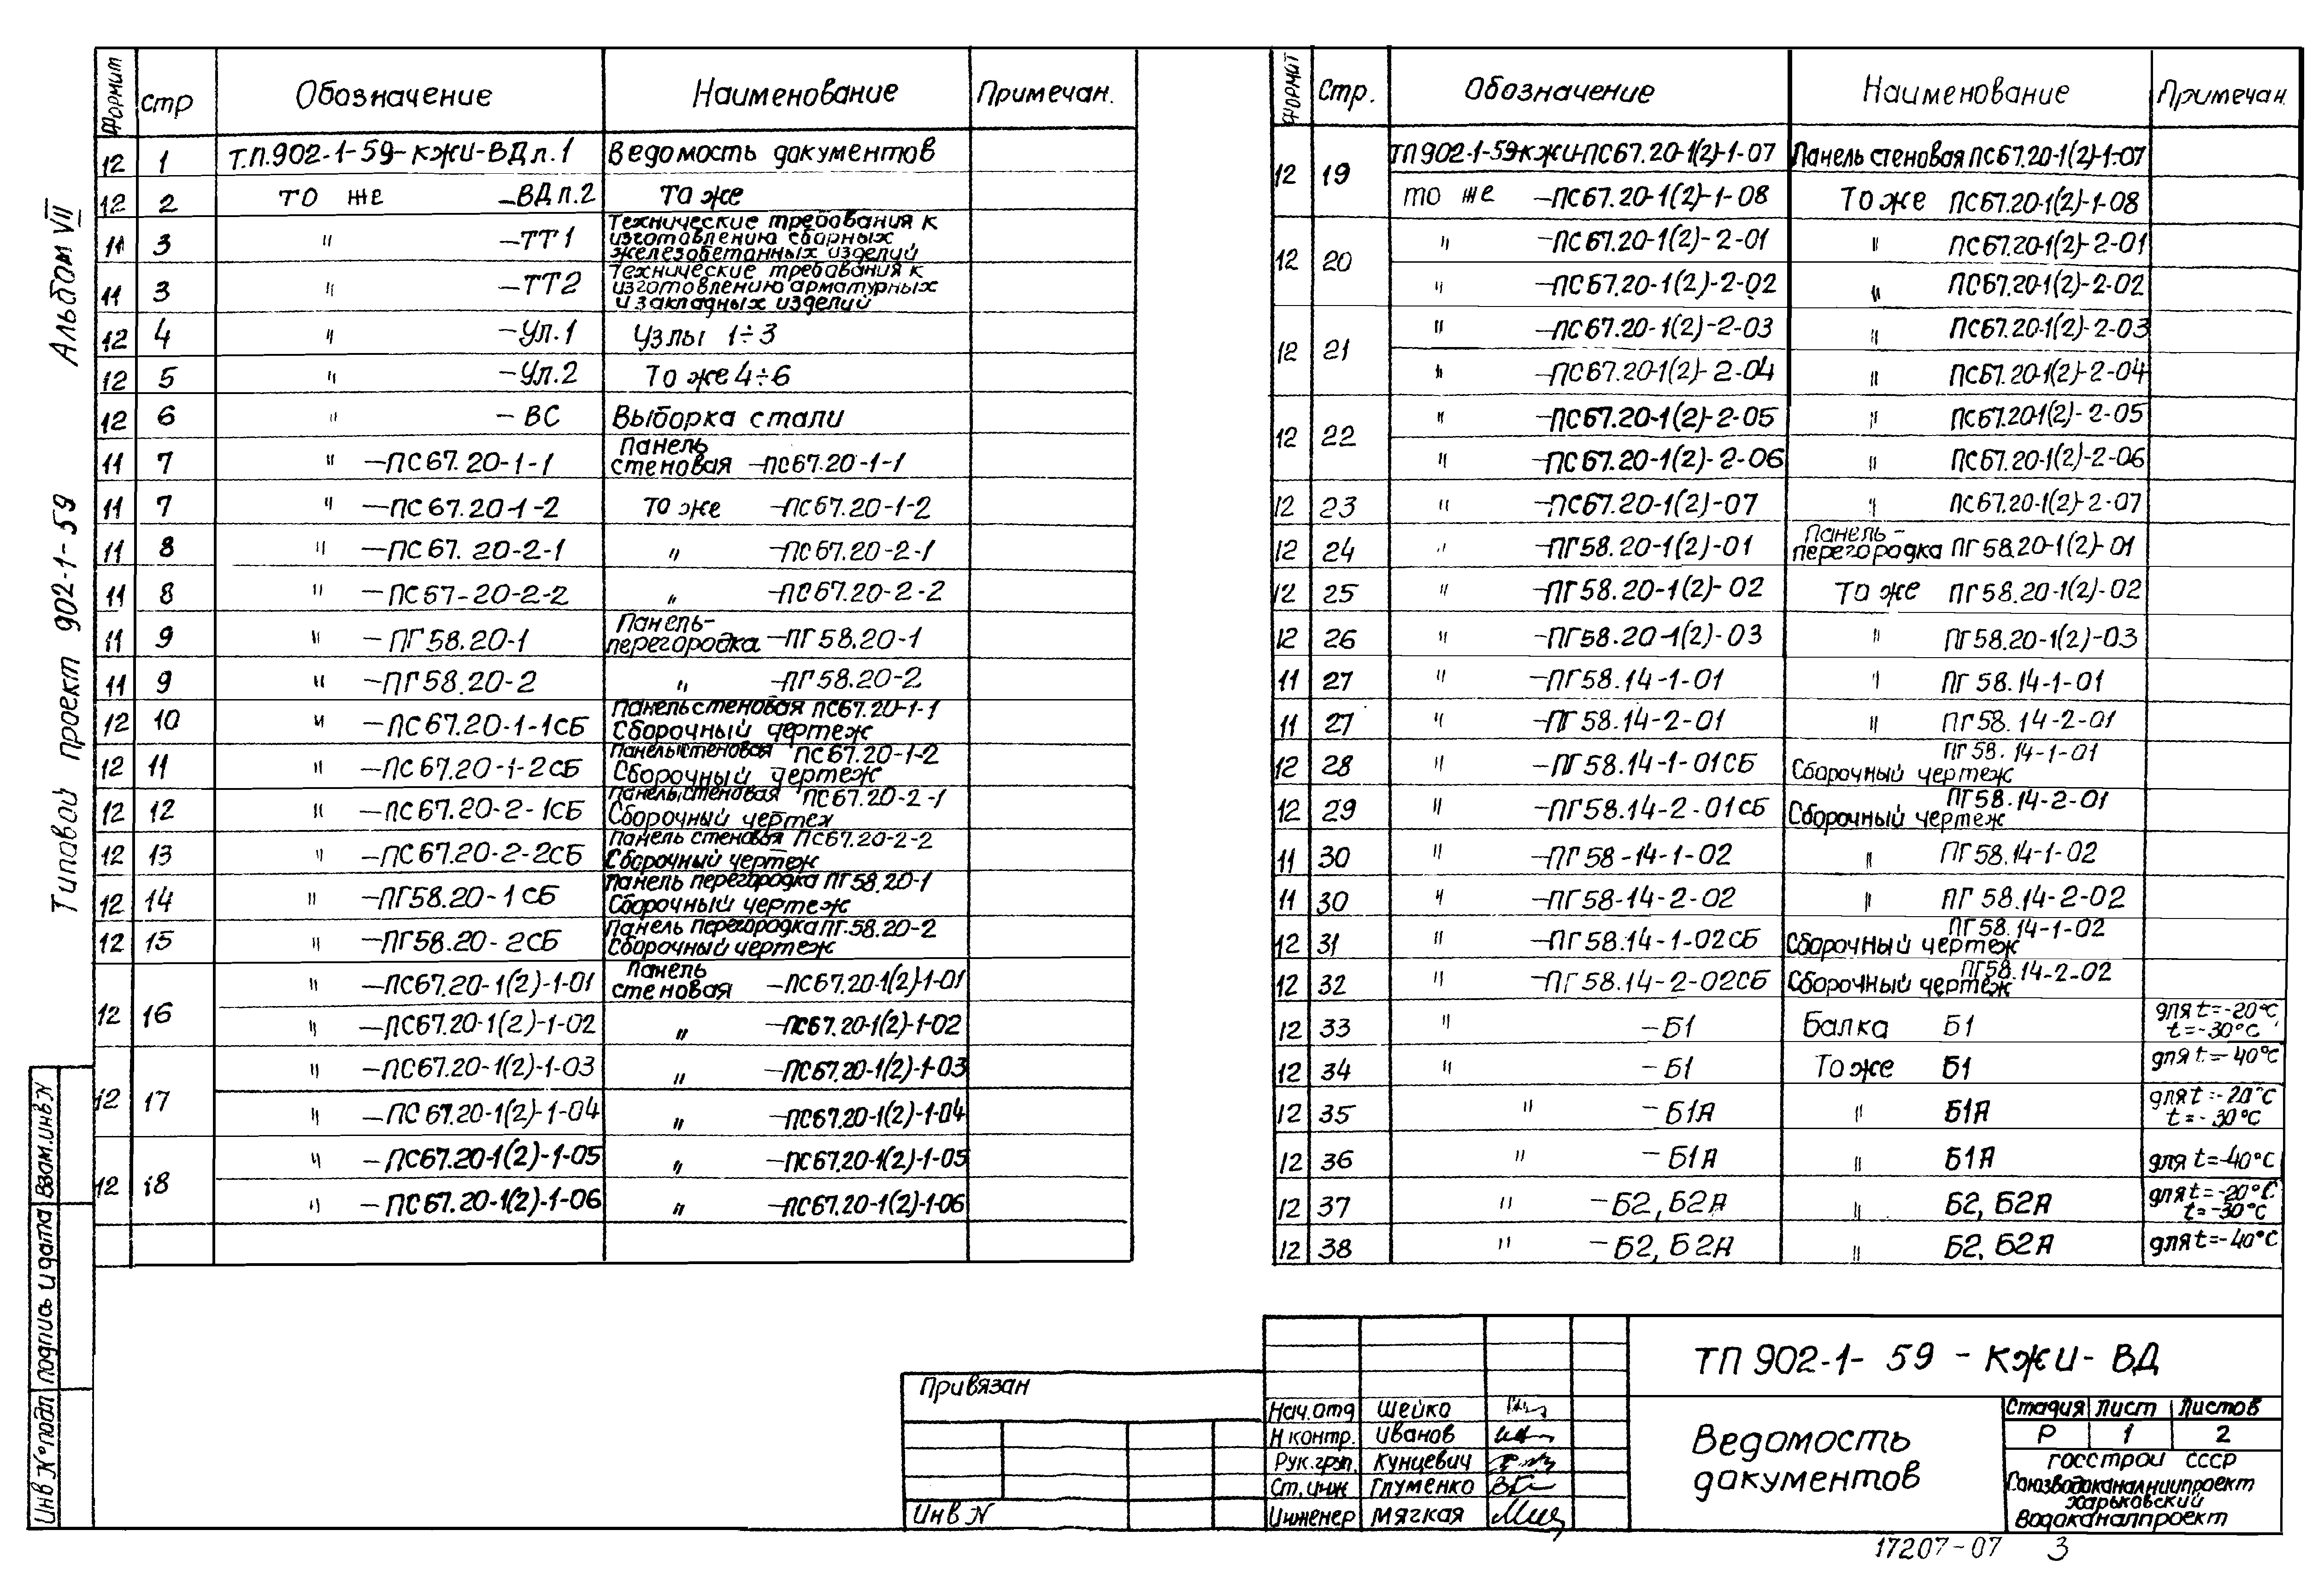 Типовой проект 902-1-59 Альбом VII
Формат стр Обозначение Наименование Примечан.
12 1 Т.П.902-1-59-КЖИ-ВДл.1 Ведомость документов
12 2 то же -ВДл.2 То же
11 3 " -ТТ1 Технические требования к
изготовлению сборных
железобетонных изделий
11 3 " -ТТ2 Технические требования к
изготовлению арматурных
и закладных изделий
12 4 " -Ул.1 Узлы 1÷3
12 5 " -Ул.2 То же 4÷6
12 6 " -ВС Выборка стали
11 7 " -ПС67.20-1-1 Панель
стеновая -ПС67.20-1-1
11 7 " -ПС67.20-1-2 то же -ПС67.20-1-2
11 8 " -ПС67.20-2-1 " -ПС67.20-2-1
11 8 " -ПС67-20-2-2 " -ПС67.20-2-2
11 9 " -ПГ58.20-1 Панель-
перегородка -ПГ58.20-1
11 9 " -ПГ58.20-2 " -ПГ58.20-2
12 10 " -ПС67.20-1-1СБ Панель стеновая ПС67.20-1-1
Сборочный чертеж
12 11 " -ПС67.20-1-2СБ Панель стеновая ПС67.20-1-2
Сборочный чертеж
12 12 " -ПС67.20-2-1СБ Панель стеновая ПС67.20-2-1
Сборочный чертеж
12 13 " -ПС67.20-2-2СБ Панель стеновая ПС67.20-2-2
Сборочный чертеж
12 14 " -ПГ58.20-1СБ Панель перегородка ПГ58.20-1
Сборочный чертеж
12 15 " -ПГ58.20-2СБ Панель перегородка ПГ.58.20-2
Сборочный чертеж
12 16 " -ПС67.20-1(2)-1-01 Панель
стеновая -ПС67.20-1(2)-1-01
" -ПС67.20-1(2)-1-02 " -ПС67.20-1(2)-1-02
12 17 " -ПС67.20-1(2)-1-03 " -ПС67.20-1(2)-1-03
" -ПС67.20-1(2)-1-04 " -ПС67.20-1(2)-1-04
12 18 " -ПС67.20-1(2)-1-05 " -ПС67.20-1(2)-1-05
" -ПС67.20-1(2)-1-06 " -ПС67.20-1(2)-1-06
Формат Стр. Обозначение Наименование Примечан.
12 19 ТП902-1-59-КЖИ-ПС67.20-1(2)-1-07 Панель стеновая ПС67.20-1(2)-1-07
то же -ПС67.20-1(2)-1-08 То же ПС67.20-1(2)-1-08
12 20 " -ПС67.20-1(2)-2-01 " ПС67.20-1(2)-2-01
" -ПС67.20-1(2)-2-02 " ПС67.20-1(2)-2-02
12 21 " -ПС67.20-1(2)-2-03 " ПС67.20-1(2)-2-03
" -ПС67.20-1(2)-2-04 " ПС67.20-1(2)-2-04
12 22 " -ПС67.20-1(2)-2-05 " ПС67.20-1(2)-2-05
" -ПС67.20-1(2)-2-06 " ПС67.20-1(2)-2-06
12 23 " -ПС67.20-1(2)-07 " ПС67.20-1(2)-2-07
12 24 " -ПГ58.20-1(2)-01 Панель-
перегородка ПГ58.20-1(2)-01
12 25 " -ПГ58.20-1(2)-02 То же ПГ58.20-1(2)-02
12 26 " -ПГ58.20-1(2)-03 " ПГ58.20-1(2)-03
11 27 " -ПГ58.14-1-01 " ПГ58.14-1-01
11 27 " -ПГ58.14-2-01 " ПГ58.14-2-01
12 28 " -ПГ58.14-1-01СБ ПГ58.14-1-01
Сборочный чертеж
12 29 " -ПГ58.14-2-01СБ ПГ58.14-2-01
Сборочный чертеж
11 30 " -ПГ58-14-1-02 " ПГ58.14-1-02
11 30 " -ПГ58-14-2-02 " ПГ58.14-2-02
12 31 " -ПГ58.14-1-02СБ ПГ58.14-1-02
Сборочный чертеж
12 32 " -ПГ58.14-2-02СБ ПГ58.14-2-02
Сборочный чертеж
12 33 " -Б1 Балка Б1 для t=-20°С
t=-30°С
12 34 " -Б1 То же Б1 для t=-40°С
12 35 " -Б1А " Б1А для t=-20°С
t=-30°С
12 36 " -Б1А " Б1А для t=-40°С
12 37 " -Б2, Б2А " Б2, Б2А для t=-20°С
t=-30°С
12 38 " -Б2, Б2А " Б2, Б2А для t=-40°С
Инв N°подл подпись и дата Взам.инв N
Привязан
Инв N
Нач.отд Шейко
Н контр. Иванов
Рук.груп. Кунцевич
Ст.инж Глуменко
Инженер Мягкая
ТП 902-1-59-КЖИ-ВД
Ведомость
документов
Стадия Лист Листов
Р 1 2
Госстрой СССР
Союзводоканалниипроект
Харьковский
Водоканалпроект
17207-07 3